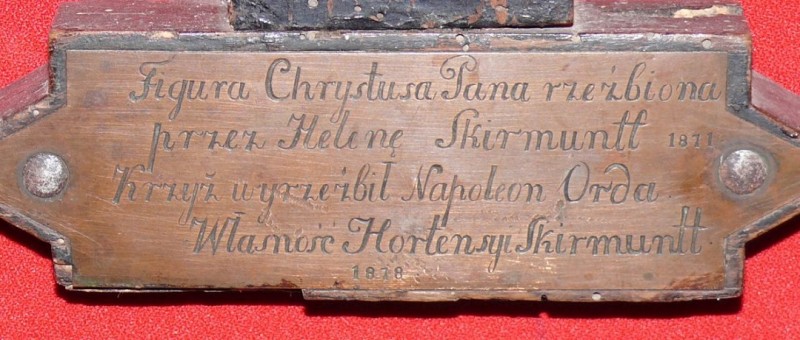 Figura Chrystusa Pana rzeźbiona
przez Helenę Skirmuntt 1871
Krzyż wyrzeźbił Napoleon Orda
Własność Hortensyi Skirmuntt
1878